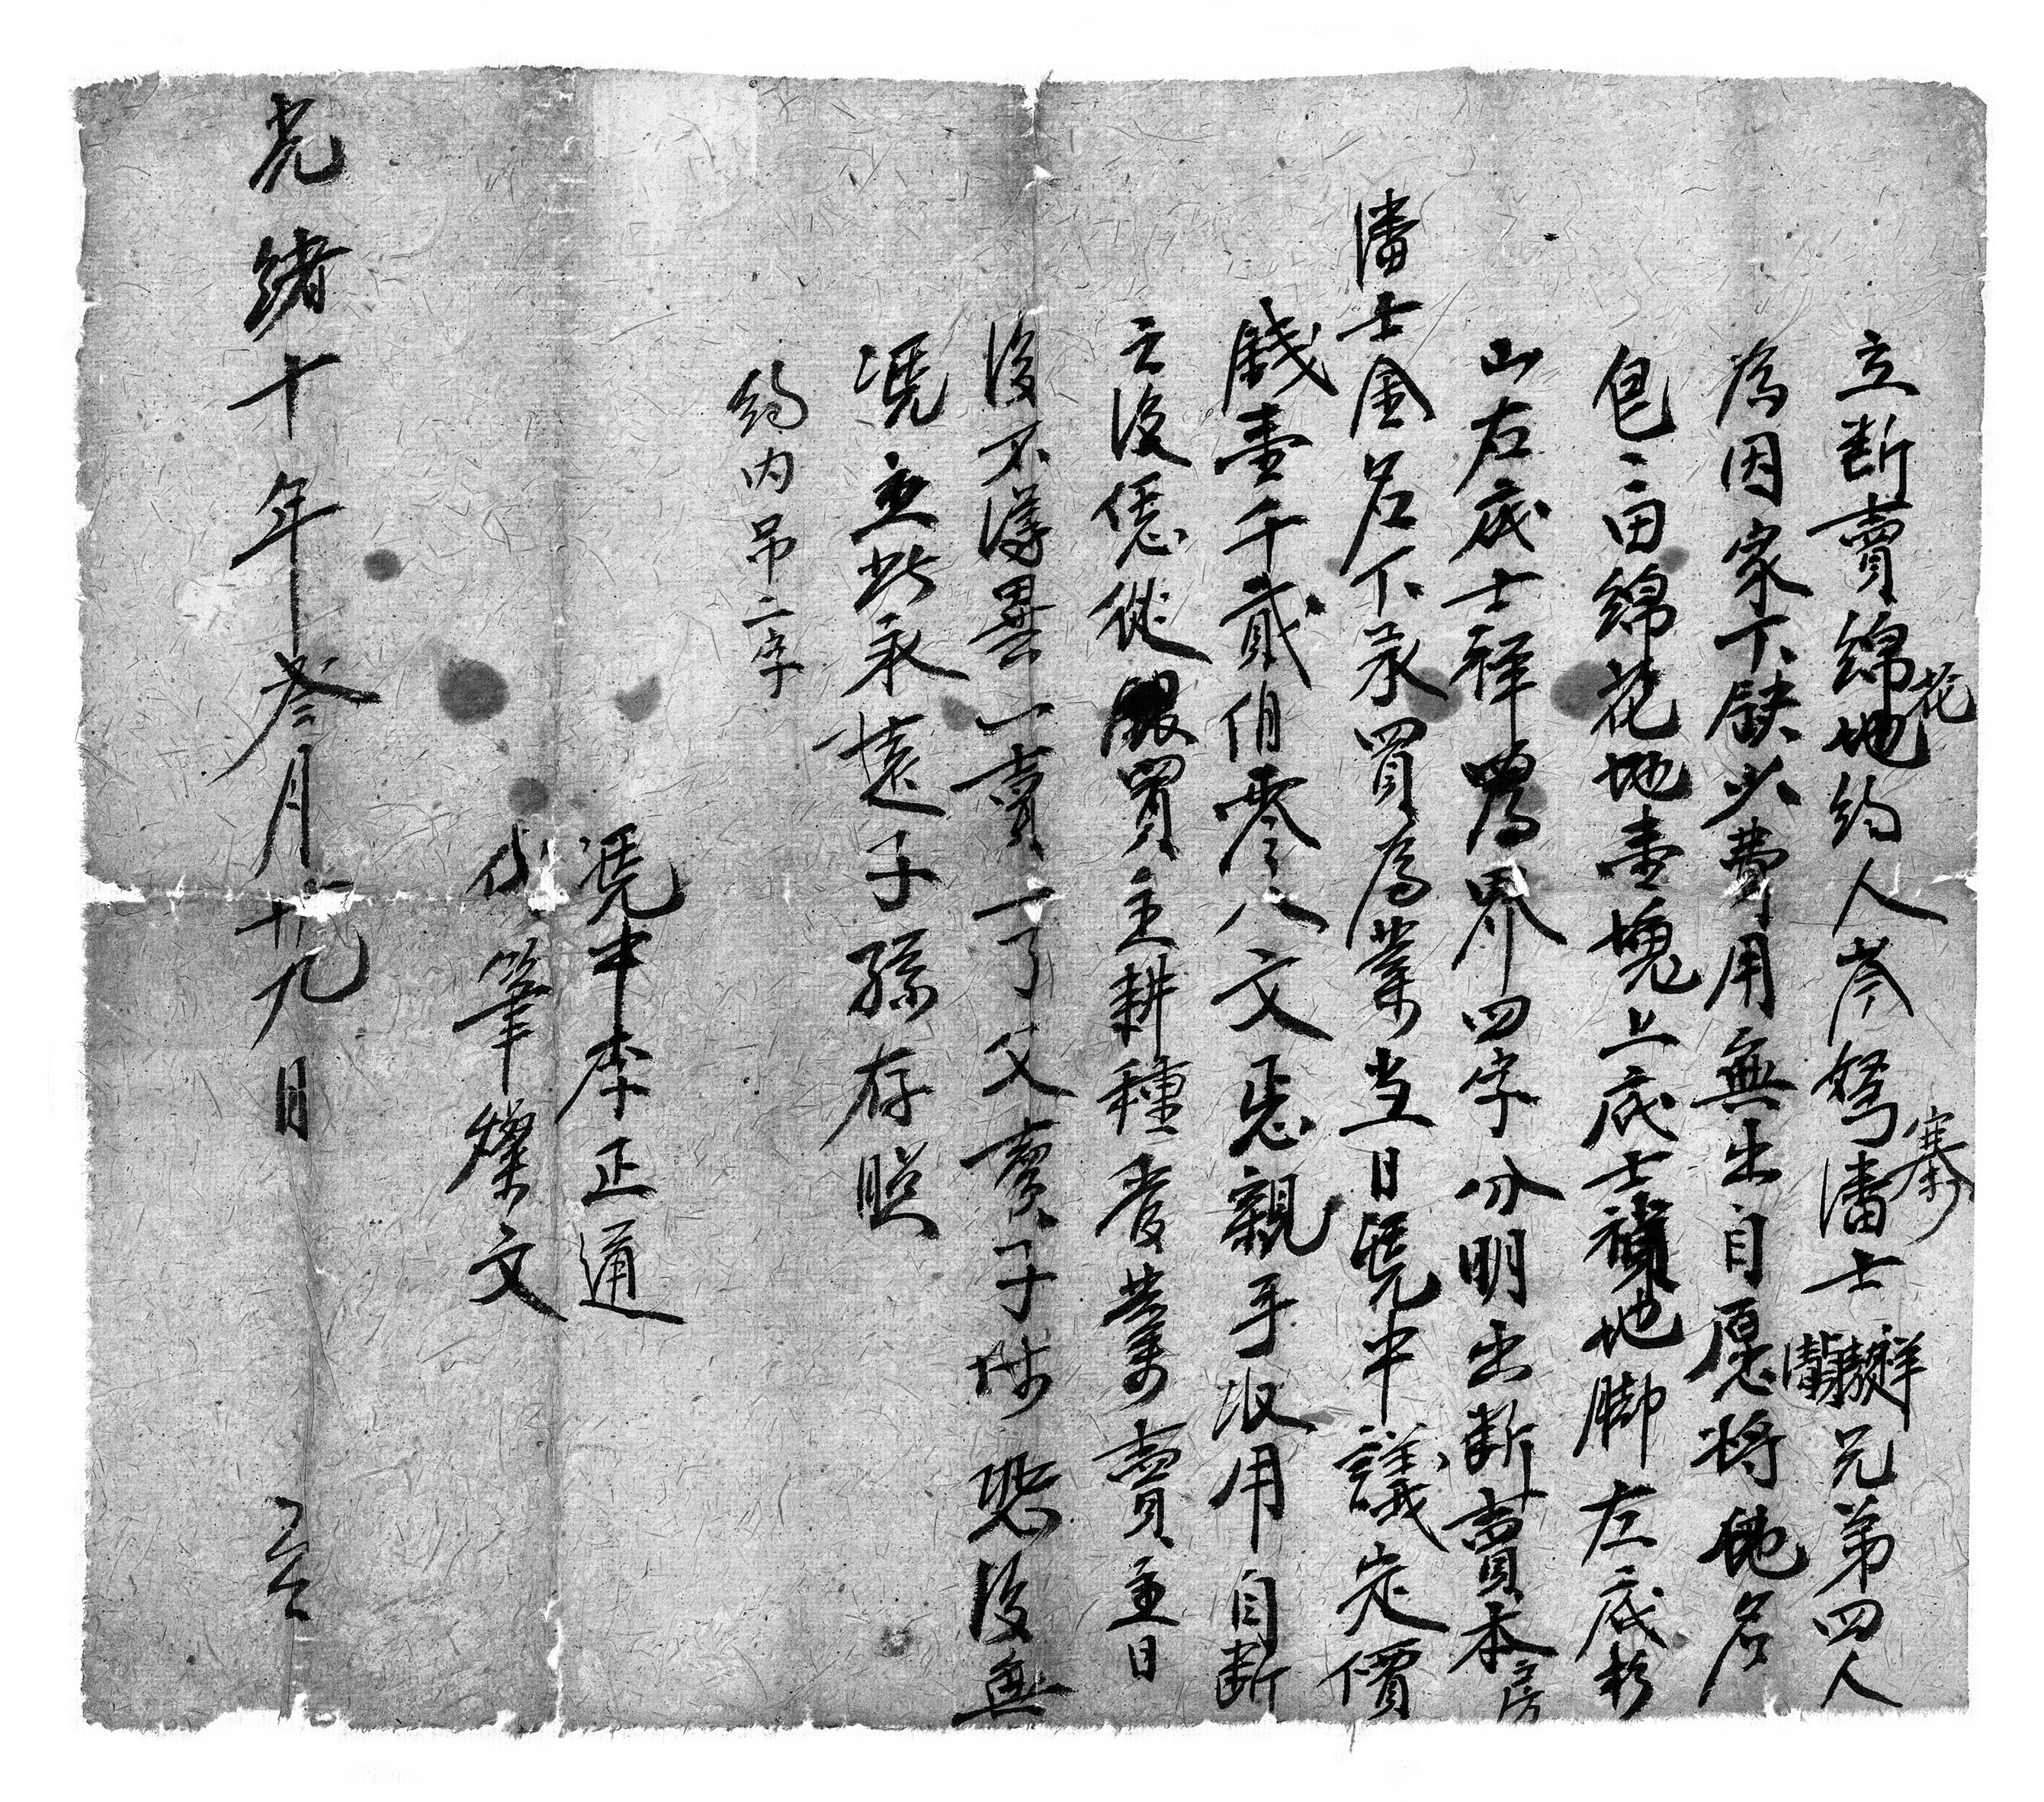 立断賣綿花地約人岑努寨潘士祥兄弟四人
為因家下缺少費用無出自愿将地名
皀田綿花地壹塊上底士地脚左底杉
山右底士祥為界四字分明出断賣本房
潘士金名下承買為業当日凭中議定價
錢壹千貳伯零八文亲親手收用自断
之後任從買主耕種管業賣主日
後不得異一賣一了父賣子休恐後無
凭立此永遠子孫存照
約内吊二字
凭中李正通
代筆燦文
光緒十年叁月十九日 立